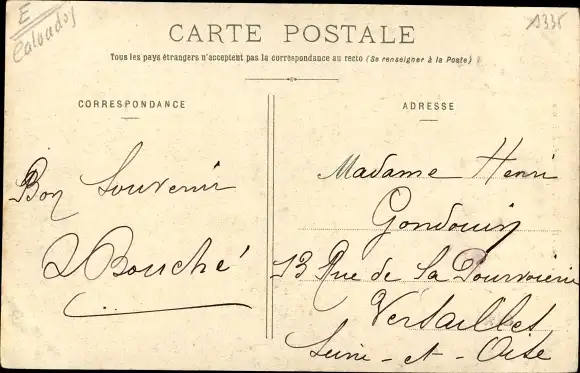 E
Calvados
1335
CARTE POSTALE
Tous les pays étrangers n'acceptent pas la correspondance au recto (Se renseigner à la Poste)
CORRESPONDANCE
Bon Souvenir
Bouché
ADRESSE
Madame Henri
Gondouin
13 Rue de la Pourvoierie
Versailles
Seine-et-Oise